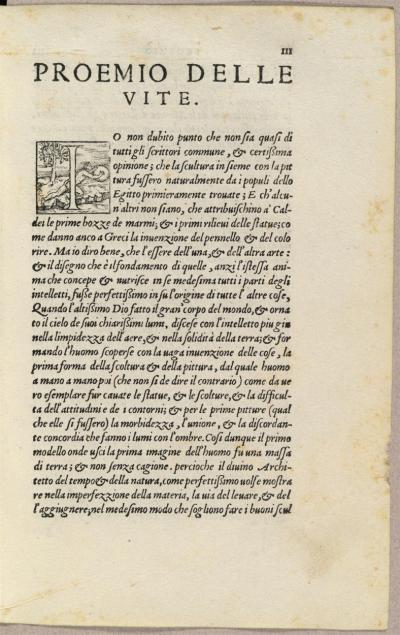 III
PROEMIO DELLE
VITE.
IO non dubito punto che non sia quasi di
tutti gli scrittori commune, & certißima
opinione; che la scultura insieme con la pit
tura fussero naturalmente da i populi dello
Egitto primieramente trouate; E ch'alcu-
n altri non siano, che attribuischino a' Cal-
dei le prime bozze de marmi; & i primi rilieui delle statue: co
me danno anco a Greci la inuenzione del pennello & del colo
rire. Ma io diro bene, che l'essere dell'una, & dell'altra arte :
& il disegno che è il fondamento di quelle, anzi l'istessa ani-
ma che concepe & nutrisce in se medesima tutti i parti degli
intelletti, fuße perfettißimo in su l'origine di tutte l'altre cose,
Quando l'altißimo Dio fatto il gran corpo del mondo, & orna
to il cielo de suoi chiarißimi lumi, discese con l'intelletto piu giu
nella limpidezza dell'aere, & nella solidità della terra; & for
mando l'huomo scoperse con la uaga inuenzione delle cose, la
prima forma della scoltura & della pittura, dal quale huomo
a mano a mano poi (che non si de dire il contrario) come da ue
ro esemplare fur cauate le statue, & le scolture, & la difficul
ta dell'attitudini e de i contorni; & per le prime pitture (qual
che elle si fussero) la morbidezza, l'unione, & la discordan-
te concordia che fanno i lumi con l'ombre. Cosi dunque il primo
modello onde usci la prima imagine dell'huomo fu una massa
di terra; & non senza cagione. percioche il diuino Archi-
tetto del tempo & della natura, come perfettißimo uolse mostra
re nella imperfezzione della materia, la uia del leuare, & del
l'aggiugnere; nel medesimo modo che sogliono fare i buoni scul